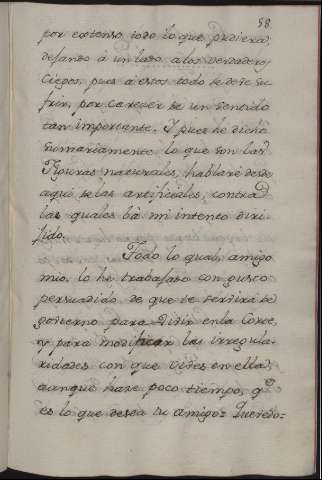 58
por extenso todo lo que pudiera,
dejando á un lado a los verdaderos
Ciegos, pues á estos todo se deve su-
frir, por carecer de un sentido
tan importante. Y pues he dicho
sumariamente lo que son las
Figuras naturales, hablaré desde
aquí de las artificiales, contra
las quales bá mi intento diri-
jido.
Todo lo qual, amigo
mio, lo he trabajado con gusto
persuadido de que te servirá de
govierno para vivir en la Corte,
y para modificar las irregula-
ridades con que vives en ella,
aunque hase poco tiempo, q.e
es lo que desea tu amigo = Quevedo =